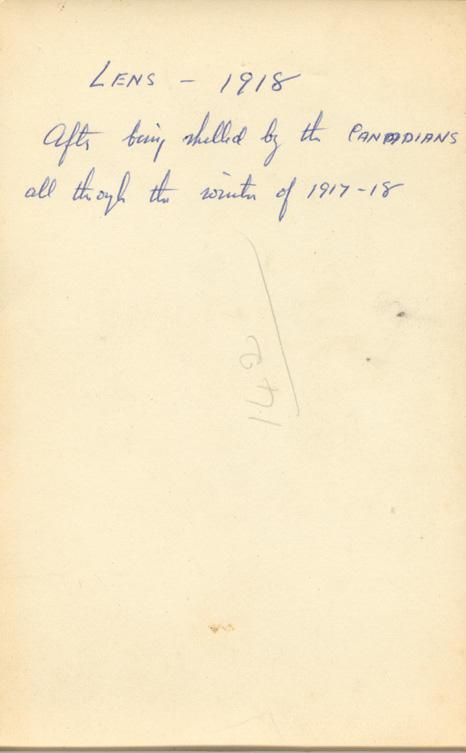 LENS - 1918
After being shelled by the CANADIANS
all through the winter of 1917-18